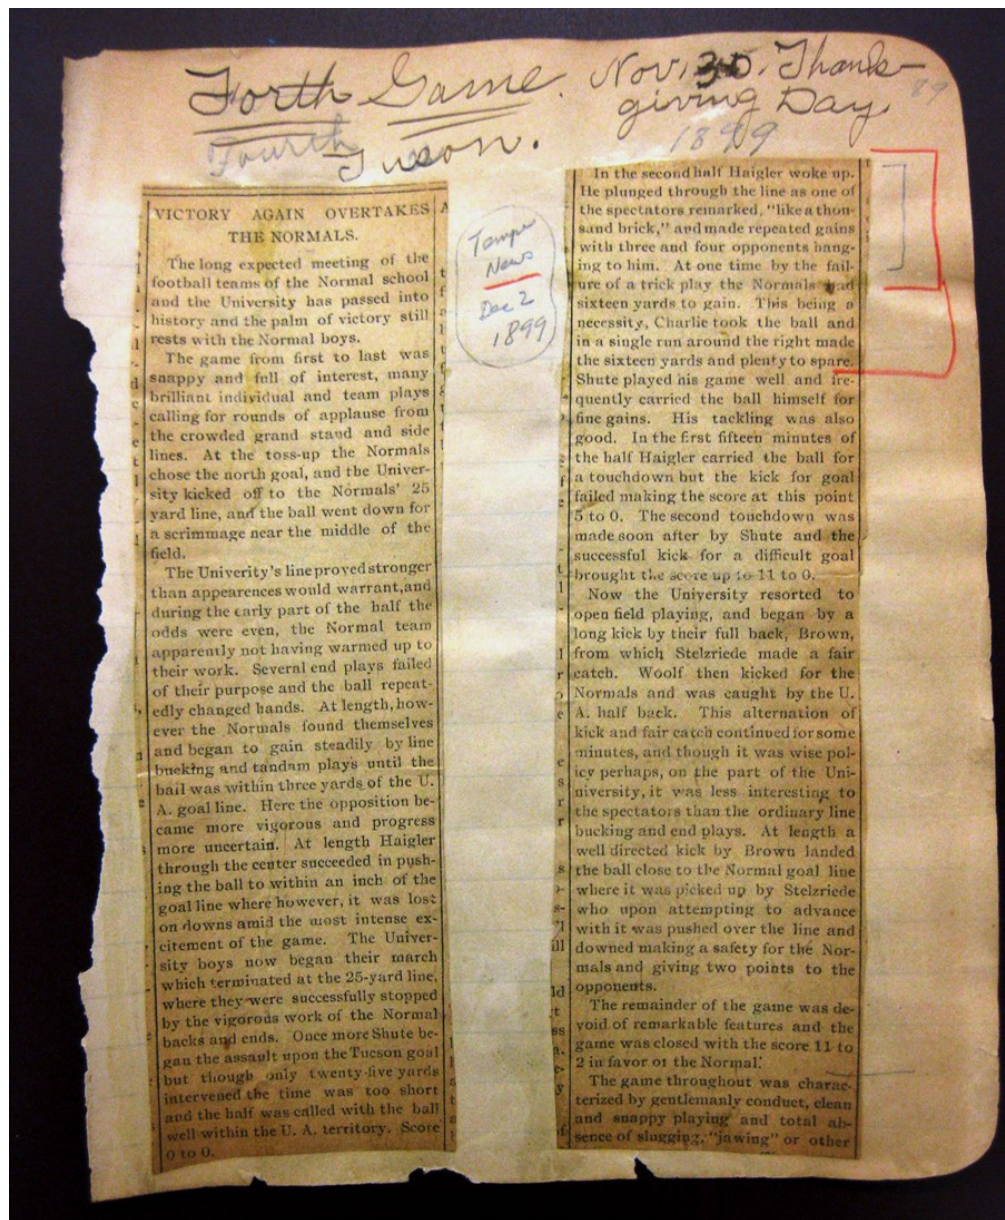 Forth Game. Nov. 30. Thanks-
giving Day
89
Fourth
Tucson.
1899
VICTORY AGAIN OVERTAKES
THE NORMALS.
The long expected meeting of the
football teams of the Normal school
and the University has passed into
history and the palm of victory still
rests with the Normal boys.
The game from first to last was
snappy and full of interest, many
brilliant individual and team plays
calling for rounds of applause from
the crowded grand stand and side
lines. At the toss-up the Normals
chose the north goal, and the Univer-
sity kicked off to the Normals' 25
yard line, and the ball went down for
a scrimmage near the middle of the
field.
The Univerity's line proved stronger
than appearences would warrant,and
during the early part of the half the
odds were even, the Normal team
apparently not having warmed up to
their work. Several end plays failed
of their purpose and the ball repeat-
edly changed hands. At length, how-
ever the Normals found themselves
and began to gain steadily by line
bucking and tandam plays until the
ball was within three yards of the U.
A. goal line. Here the opposition be-
came more vigorous and progress
more uncertain. At length Haigler
through the center succeeded in push-
ing the ball to within an inch of the
goal line where however, it was lost
on downs amid the most intense ex-
citement of the game. The Univer-
sity boys now began their march
which terminated at the 25-yard line,
where they were successfully stopped
by the vigorous work of the Normal
backs and ends. Once more Shute be-
gan the assault upon the Tucson goal
but though only twenty-five yards
intervened the time was too short
and the half was called with the ball
well within the U. A. territory. Score
0 to 0.
Tempe
News
Dec 2
1899
In the second half Haigler woke up.
He plunged through the line as one of
the spectators remarked, "like a thou-
sand brick," and made repeated gains
with three and four opponents hang-
ing to him. At one time by the fail-
ure of a trick play the Normals had
sixteen yards to gain. This being a
necessity, Charlie took the ball and
in a single run around the right made
the sixteen yards and plenty to spare.
Shute played his game well and fre-
quently carried the ball himself for
fine gains. His tackling was also
good. In the first fifteen minutes of
the half Haigler carried the ball for
a touchdown but the kick for goal
failed making the score at this point
5 to 0. The second touchdown was
made soon after by Shute and the
successful kick for a difficult goal
brought the score up to 11 to 0.
Now the University resorted to
open field playing, and began by a
long kick by their full back, Brown,
from which Stelzriede made a fair
catch. Woolf then kicked for the
Normals and was caught by the U.
A. half back. This alternation of
kick and fair catch continued for some
minutes, and though it was wise pol-
icy perhaps, on the part of the Uni-
niversity, it was less interesting to
the spectators than the ordinary line
bucking and end plays. At length a
well directed kick by Brown landed
the ball close to the Normal goal line
where it was picked up by Stelzriede
who upon attempting to advance
with it was pushed over the line and
downed making a safety for the Nor-
mals and giving two points to the
opponents.
The remainder of the game was de-
void of remarkable features and the
game was closed with the score 11 to
2 in favor of the Normal.
The game throughout was charac-
terized by gentlemanly conduct, clean
and snappy playing and total ab-
sence of slugging, "jawing" or other